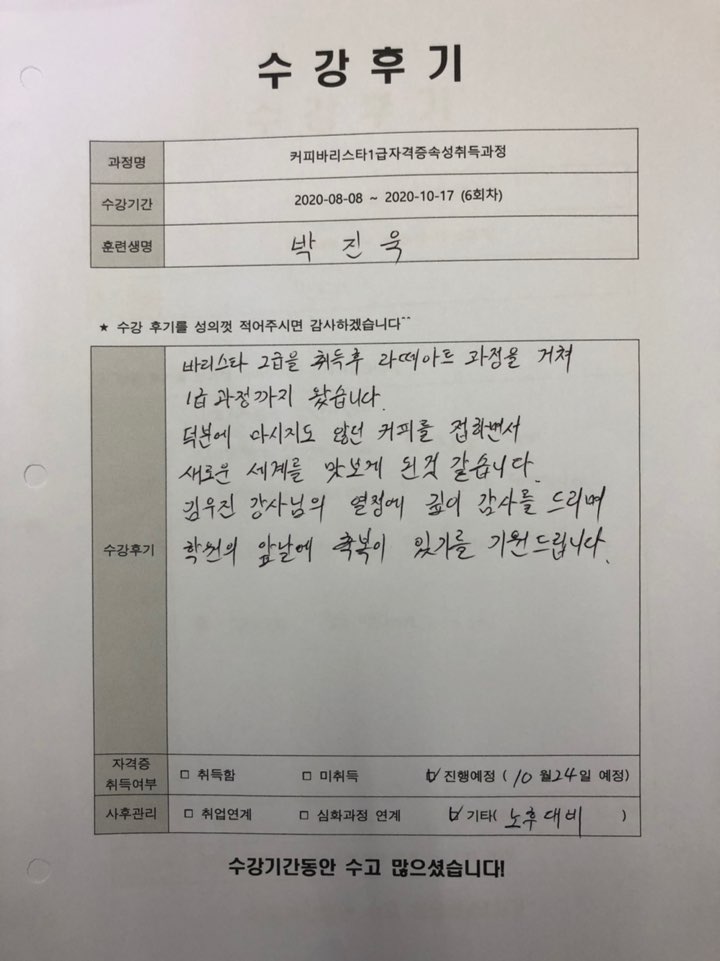 수강후기
과정명 커피바리스타1급자격증속성취득과정
수강기간 2020-08-08 ~ 2020-10-17 (6회차)
훈련생명 박진욱
★ 수강 후기를 성의껏 적어주시면 감사하겠습니다^^
수강후기
바리스타 2급을 취득후 라떼아트 과정을 거쳐
1급 과정까지 왔습니다.
덕분에 마시지도 않던 커피를 접하면서
새로운 세계를 맛보게 된것 같습니다.
김우진 강사님의 열정에 깊이 감사를 드리며
학원의 앞날에 축복이 있기를 기원드립니다.
자격증 취득여부 □ 취득함 □ 미취득 ☑ 진행예정 ( 10 월 24 일 예정)
사후관리 □ 취업연계 □ 심화과정 연계 ☑ 기타( 노후대비 )
수강기간동안 수고 많으셨습니다!